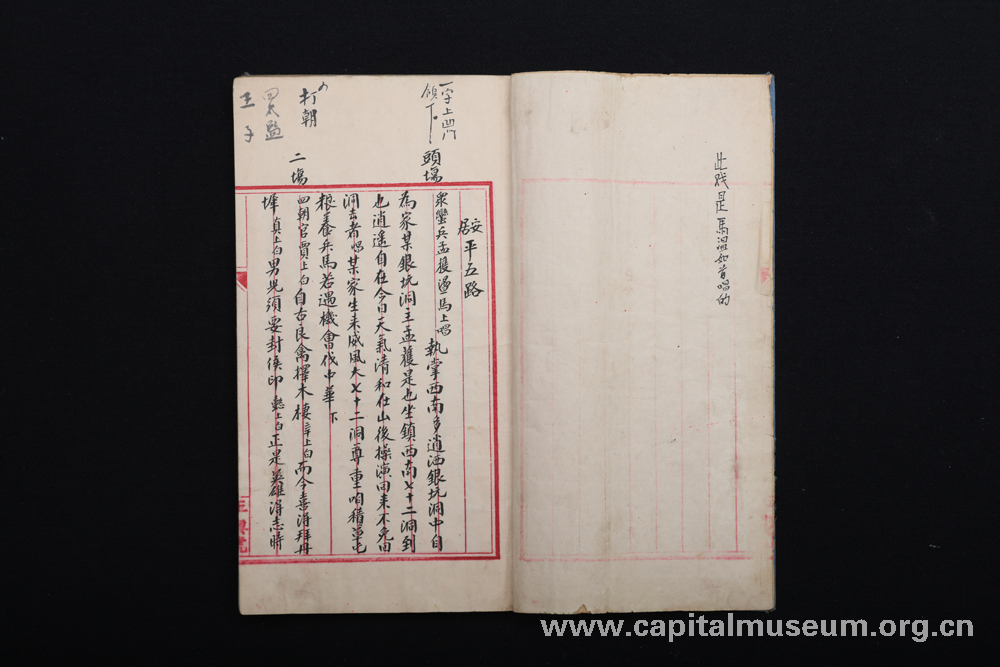 此戏是馬温如首唱的
安居平五路
一字上四門
領下
頭場
衆蠻兵孟獲邊馬上唱執掌西南多逍洒銀坑洞中自
為家某銀坑洞主孟獲是也坐鎮西南七十二洞到
也逍遥自在今日天氣清和在山後操演回来不免回
洞去者唱某家生来威風大七十二洞尊重咱積草屯
粮養兵馬若遇機會伐中華下
打朝
二場
四朝官賈上白自古良禽擇木棲章上白而今喜得拜丹
墀真上白男児須要封侯印懿上白正是英雄得志時
四太監
王子
www.capitalmuseum.org.cn